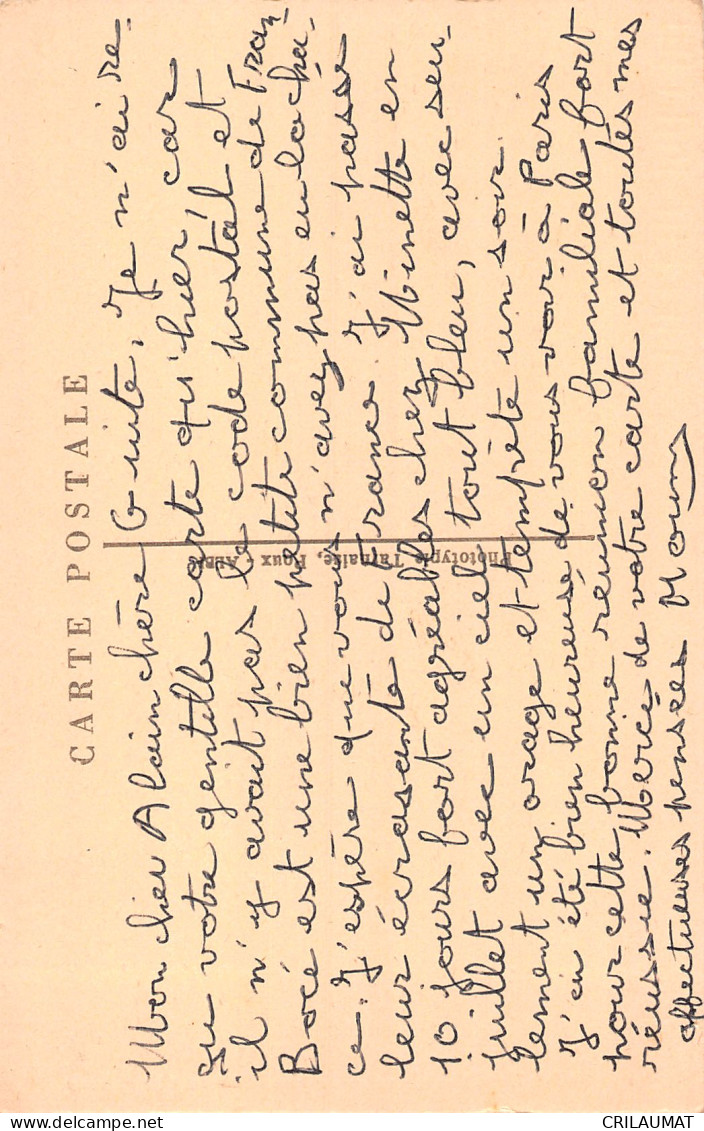 CARTE POSTALE
Mon cher Alain chère Guite, Je n'ai re-
çu votre gentille carte qu'hier, car
il n'y avait pas le code postal et
Bocé est une bien petite commune de Fran-
ce. J'espère que vous n'avez pas eu la cha-
leur écrasante de France. J'ai passé
10 jours fort agréables chez Minette en
juillet avec un ciel tout bleu, avec seu-
lement un orage et tempête un soir.
J'ai été bien heureuse de vous voir à Paris
pour cette bonne réunion familiale fort
réussie. Merci de votre carte et toutes mes
affectueuses pensées
Phototypie Tarnaise, Poux - ALBI
CRILAUMAT